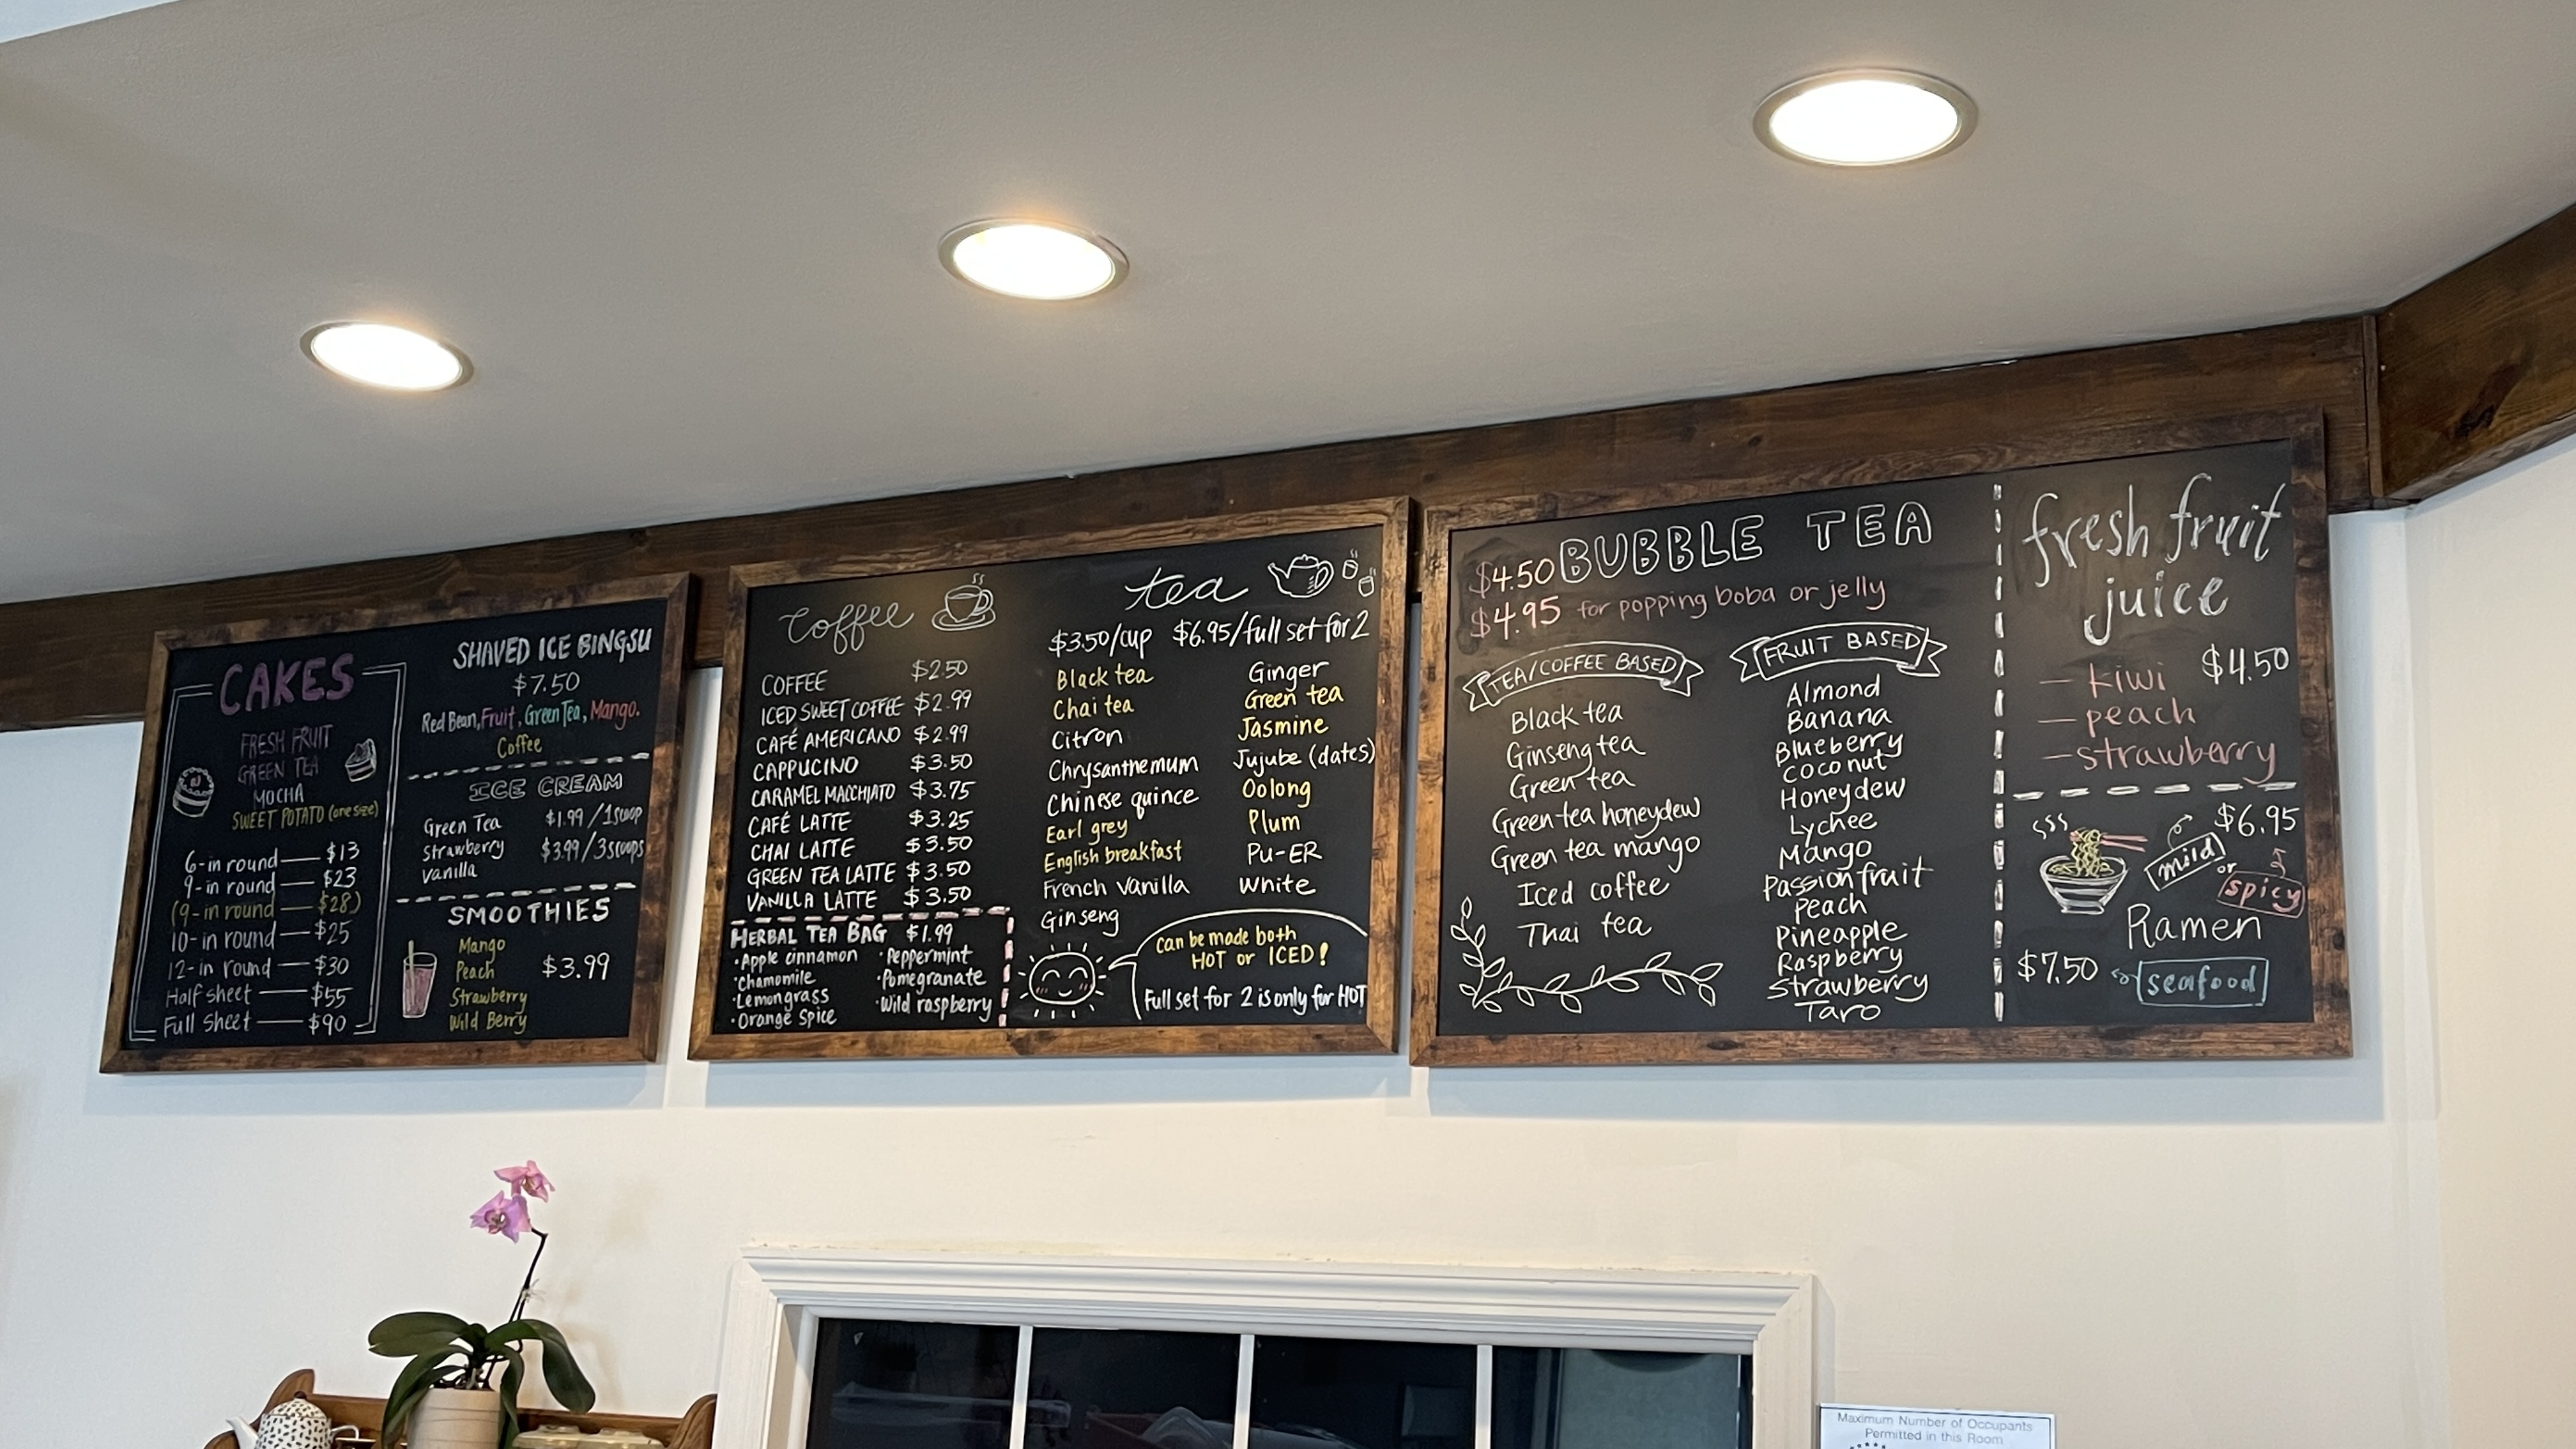 CAKES
FRESH FRUIT
GREEN TEA
MOCHA
SWEET POTATO (one size)
6-in round — $13
9-in round — $23
(9-in round — $28)
10-in round — $25
12-in round — $30
Half sheet — $55
Full sheet — $90
SHAVED ICE BINGSU
$7.50
Red Bean, Fruit, Green Tea, Mango.
Coffee
ICE CREAM
Green Tea $1.99/1scoop
Strawberry $3.99/3scoops
Vanilla
SMOOTHIES
Mango
Peach $3.99
Strawberry
Wild Berry
Coffee
COFFEE $2.50
ICED SWEET COFFEE $2.99
CAFÉ AMERICANO $2.99
CAPPUCINO $3.50
CARAMEL MACCHIATO $3.75
CAFÉ LATTE $3.25
CHAI LATTE $3.50
GREEN TEA LATTE $3.50
VANILLA LATTE $3.50
HERBAL TEA BAG $1.99
·Apple cinnamon ·Peppermint
·Chamomile ·Pomegranate
·Lemongrass ·Wild raspberry
·Orange Spice
tea
$3.50/cup $6.95/full set for 2
Black tea Ginger
Chai tea Green tea
Citron Jasmine
Chrysanthemum Jujube (dates)
Chinese quince Oolong
Earl grey Plum
English breakfast Pu-ER
French Vanilla White
Ginseng
Can be made both
HOT or ICED!
Full set for 2 is only for HOT
$4.50 BUBBLE TEA
$4.95 for popping boba or jelly
TEA/COFFEE BASED
Black tea
Ginseng tea
Green tea
Green tea honeydew
Green tea mango
Iced coffee
Thai tea
FRUIT BASED
Almond
Banana
Blueberry
Coconut
Honeydew
Lychee
Mango
Passion fruit
Peach
Pineapple
Raspberry
Strawberry
Taro
fresh fruit
juice
$4.50
— kiwi
— peach
— strawberry
$6.95
mild
or
spicy
Ramen
$7.50 seafood
Maximum Number of Occupants
Permitted in this Room